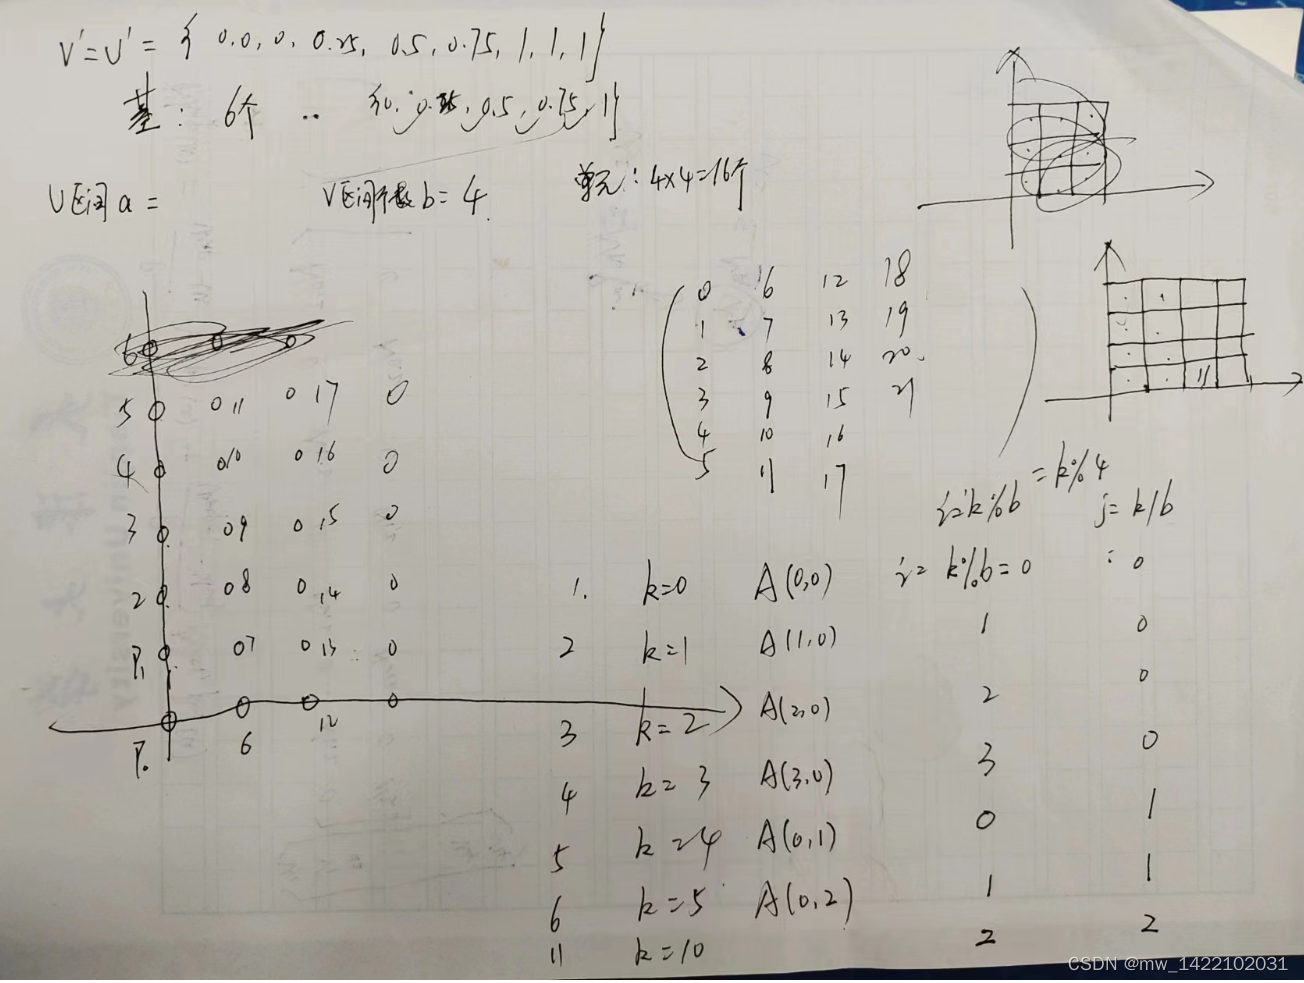 V'=U'= { 0.0, 0, 0.25, 0.5, 0.75, 1, 1, 1}
基: 6个 .. {0, 0.25, 0.5, 0.75, 1}
U区间a= V区间个数b=4. 单元:4×4=16个
0 6 12 18
1 7 13 19
2 8 14 20
3 9 15 21
4 10 16
5 11 17
6
5 0 11 0 17 0
4 0 10 0 16 0
3 0 9 0 15 0
2 0 8 0 14 0
P1 0 7 0 13 0
P0 6 12
11
i=k%b =k%4 j=k/b
1. k=0 A(0,0) i=k%b=0 : 0
2 k=1 A(1,0) 1 0
3 k=2 A(2,0) 2 0
4 k=3 A(3,0) 3 0
5 k=4 A(0,1) 0 1
6 k=5 A(0,2) 1 1
11 k=10 2 2
CSDN @mw_1422102031